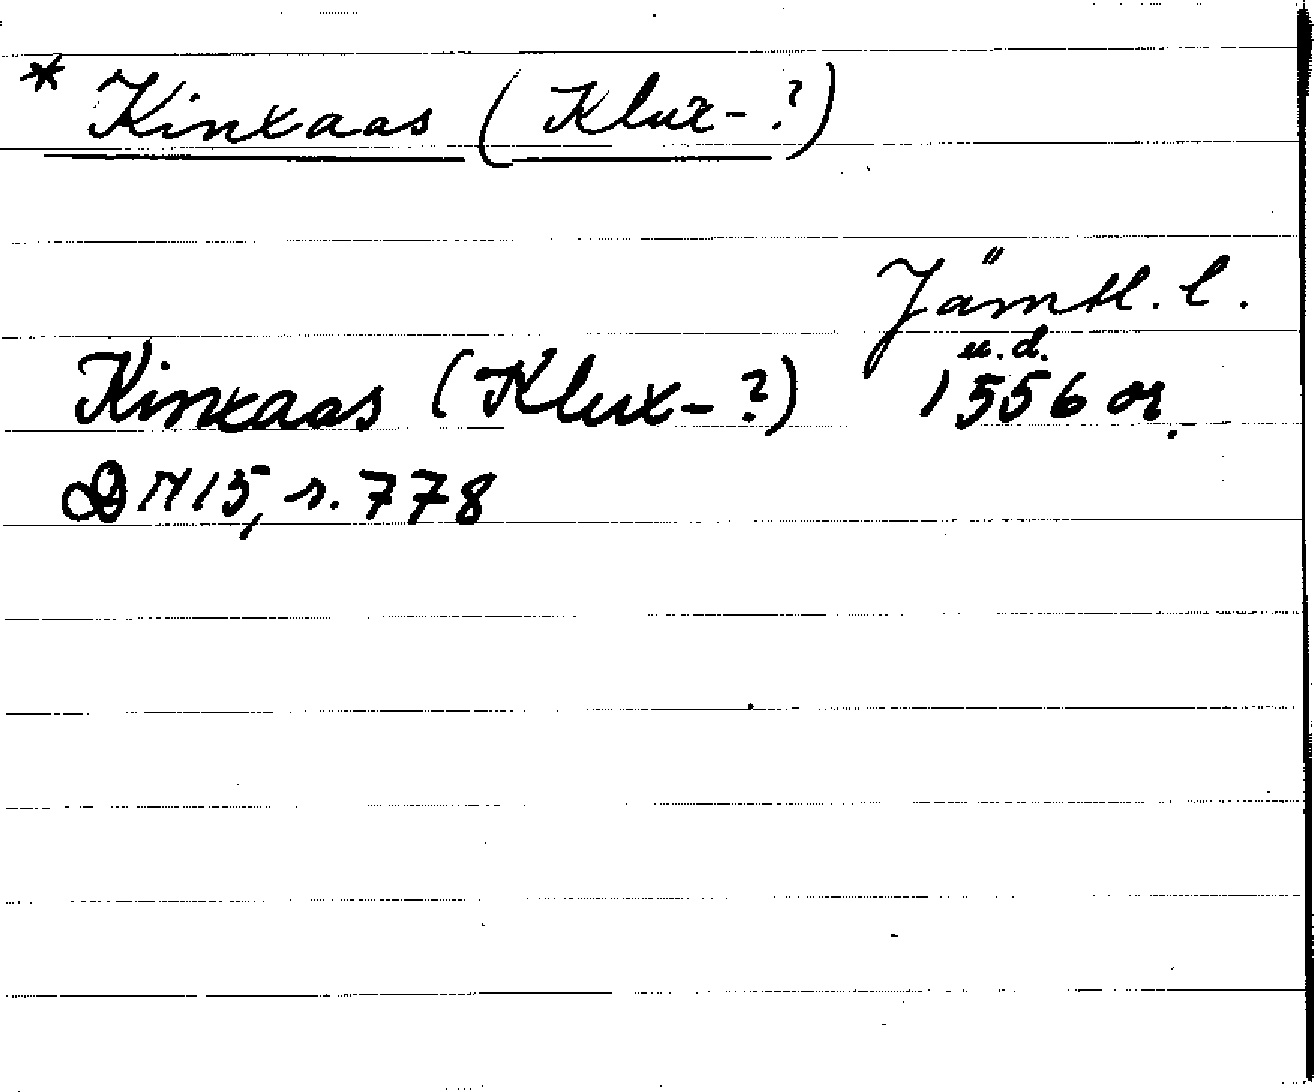 * Kinxaas (Klux-?)
Jämtl. l.
u.d.
Kinxaas (Klux-?) 1556 or.
DN 15, s. 778